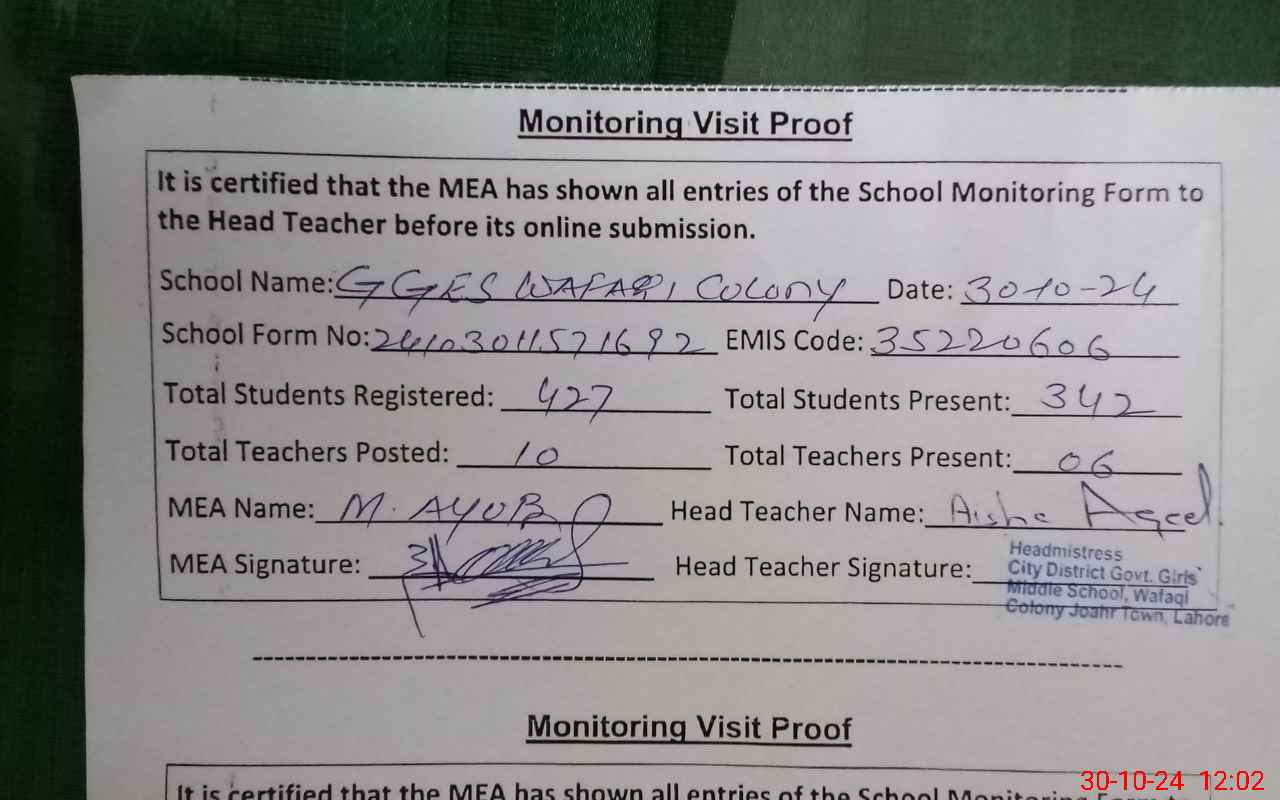 Monitoring Visit Proof
It is certified that the MEA has shown all entries of the School Monitoring Form to
the Head Teacher before its online submission.
School Name: GGES WAFAQI COLONY Date: 30-10-24
School Form No: 24103011571692 EMIS Code: 35220606
Total Students Registered: 427 Total Students Present: 342
Total Teachers Posted: 10 Total Teachers Present: 06
MEA Name: M. AYUB Head Teacher Name: Aisha Aqeel.
MEA Signature: Head Teacher Signature:
Headmistress
City District Govt. Girls
Middle School, Wafaqi
Colony Joahr Town, Lahore
Monitoring Visit Proof
It is certified that the MEA has shown all entries of the School Monitoring Form
30-10-24 12:02